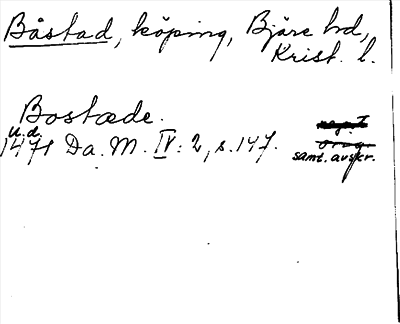 Båstad, köping, Bjäre hd,
Krist. l.
Bostæde.
u.d.
1471 Da. M. IV: 2, s. 147.
samt. avskr.